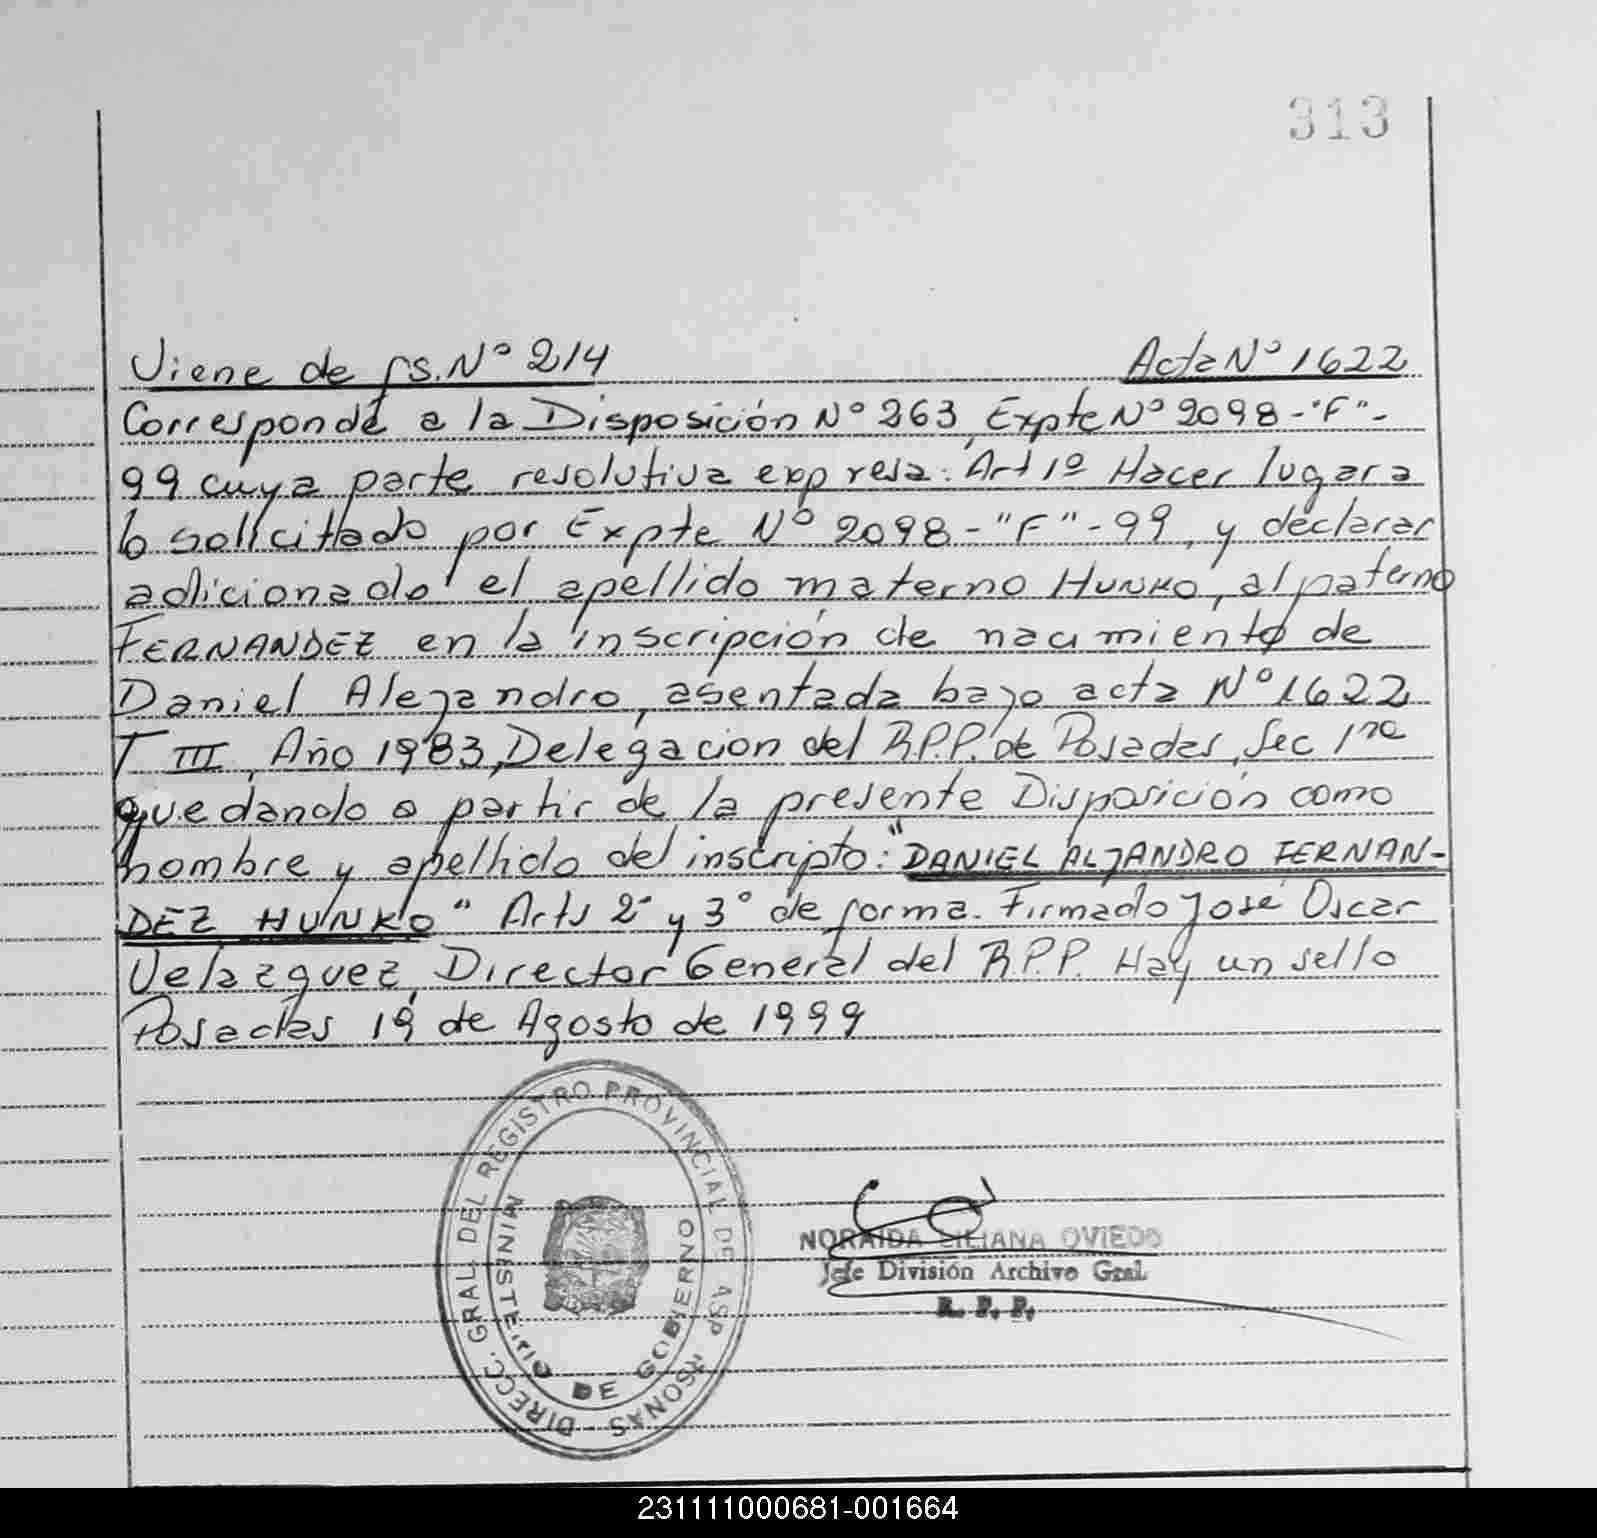 313
Viene de fs. Nº 214 Acta Nº 1622
Corresponde a la Disposición Nº 263, Expte Nº 2098-"F"-
99 cuya parte resolutiva expresa: Art 1º Hacer lugar a
lo solicitado por Expte Nº 2098-"F"-99, y declarar
adicionado el apellido materno HUNKO, al paterno
FERNANDEZ en la inscripción de nacimiento de
Daniel Alejandro, asentada bajo acta Nº 1622
T III, Año 1983, Delegacion del R.P.P. de Posadas, Sec 1ra
quedando a partir de la presente Disposición como
nombre y apellido del inscripto: "DANIEL ALJANDRO FERNAN-
DEZ HUNKO" Arts 2º y 3º de forma. Firmado José Oscar
Velazquez, Director General del R.P.P. Hay un sello
Posadas 19 de Agosto de 1999
DIRECC. GRAL DEL REGISTRO PROVINCIAL DE LAS PERSONAS
MINISTERIO DE GOBIERNO
NORAIDA LILIANA OVIEDO
Jefe División Archivo Gral.
R. P. P.
231111000681-001664